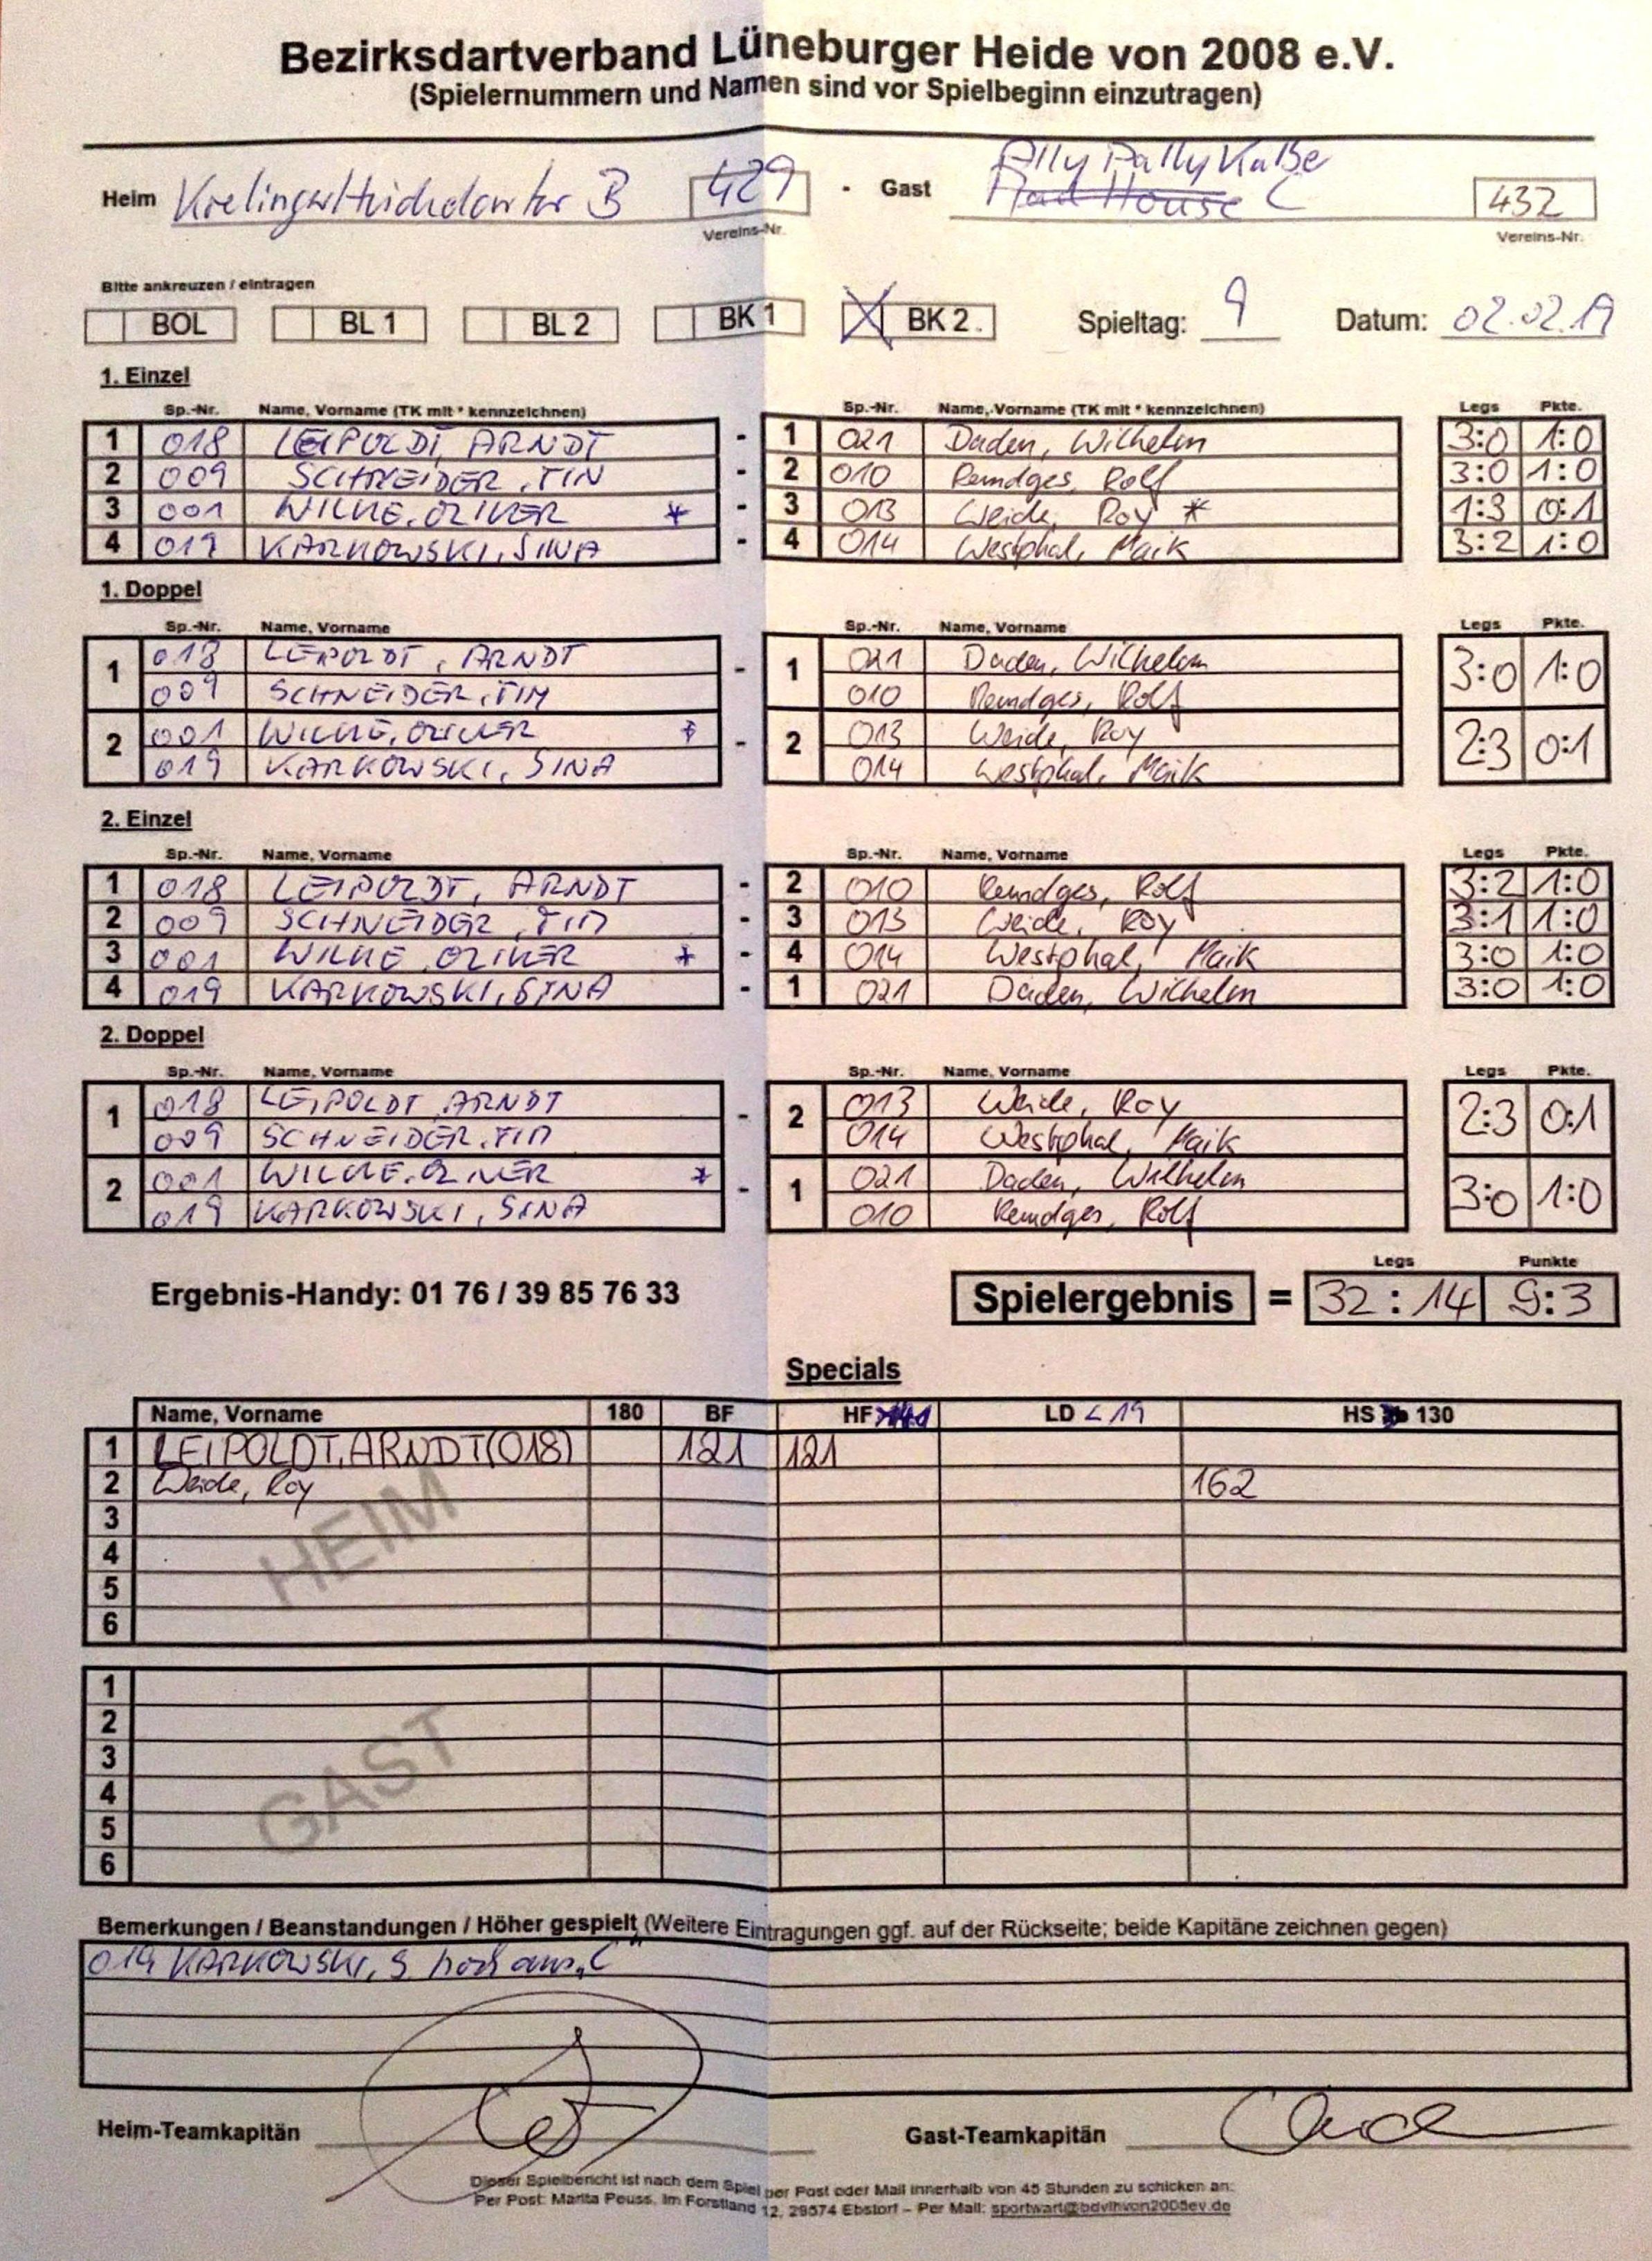 Bezirksdartverband Lüneburger Heide von 2008 e.V.
(Spielernummern und Namen sind vor Spielbeginn einzutragen)
Heim B 429 - Gast Ally Pally Kaße C 432
Mad House
Vereins-Nr. Vereins-Nr.
Bitte ankreuzen / eintragen
BOL BL 1 BL 2 BK 1 X BK 2. Spieltag: 9 Datum: 02.02.19
1. Einzel
Sp.-Nr. Name, Vorname (TK mit * kennzeichnen) Sp.-Nr. Name, Vorname (TK mit * kennzeichnen) Legs Pkte.
1 018 LEIPOLDT, ARNDT - 1 021 Daden, Wilhelm 3:0 1:0
2 009 SCHNEIDER, TIM - 2 010 Remdges, Rolf 3:0 1:0
3 001 WILKE, OLIVER * - 3 013 Weide, Roy * 1:3 0:1
4 019 KARKOWSKI, SINA - 4 014 Westphal, Maik 3:2 1:0
1. Doppel
Sp.-Nr. Name, Vorname Sp.-Nr. Name, Vorname Legs Pkte.
1 018 LEIPOLDT, ARNDT - 1 021 Daden, Wilhelm 3:0 1:0
009 SCHNEIDER, TIM 010 Remdges, Rolf
2 001 WILKE, OLIVER * - 2 013 Weide, Roy 2:3 0:1
019 KARKOWSKI, SINA 014 Westphal, Maik
2. Einzel
Sp.-Nr. Name, Vorname Sp.-Nr. Name, Vorname Legs Pkte.
1 018 LEIPOLDT, ARNDT - 2 010 Remdges, Rolf 3:2 1:0
2 009 SCHNEIDER, TIM - 3 013 Weide, Roy 3:1 1:0
3 001 WILKE, OLIVER * - 4 014 Westphal, Maik 3:0 1:0
4 019 KARKOWSKI, SINA - 1 021 Daden, Wilhelm 3:0 1:0
2. Doppel
Sp.-Nr. Name, Vorname Sp.-Nr. Name, Vorname Legs Pkte.
1 018 LEIPOLDT, ARNDT - 2 013 Weide, Roy 2:3 0:1
009 SCHNEIDER, TIM 014 Westphal, Maik
2 001 WILKE, OLIVER * - 1 021 Daden, Wilhelm 3:0 1:0
019 KARKOWSKI, SINA 010 Remdges, Rolf
Legs Punkte
Ergebnis-Handy: 01 76 / 39 85 76 33 Spielergebnis = 32 : 14 9:3
Specials
Name, Vorname 180 BF HF LD < 19 HS 130
1 LEIPOLDT, ARNDT (018) 121 121
2 Weide, Roy 162
3
4
5
6
HEIM
1
2
3
4
5
6
GAST
Bemerkungen / Beanstandungen / Höher gespielt (Weitere Eintragungen ggf. auf der Rückseite; beide Kapitäne zeichnen gegen)
019 KARKOWSKI, S. hoch aus „C"
Heim-Teamkapitän Gast-Teamkapitän
Dieser Spielbericht ist nach dem Spiel per Post oder Mail innerhalb von 48 Stunden zu schicken an:
Per Post: Marita Peuss, Im Forstland 12, 29574 Ebstorf – Per Mail: sportwart@bdvlhvon2008ev.de